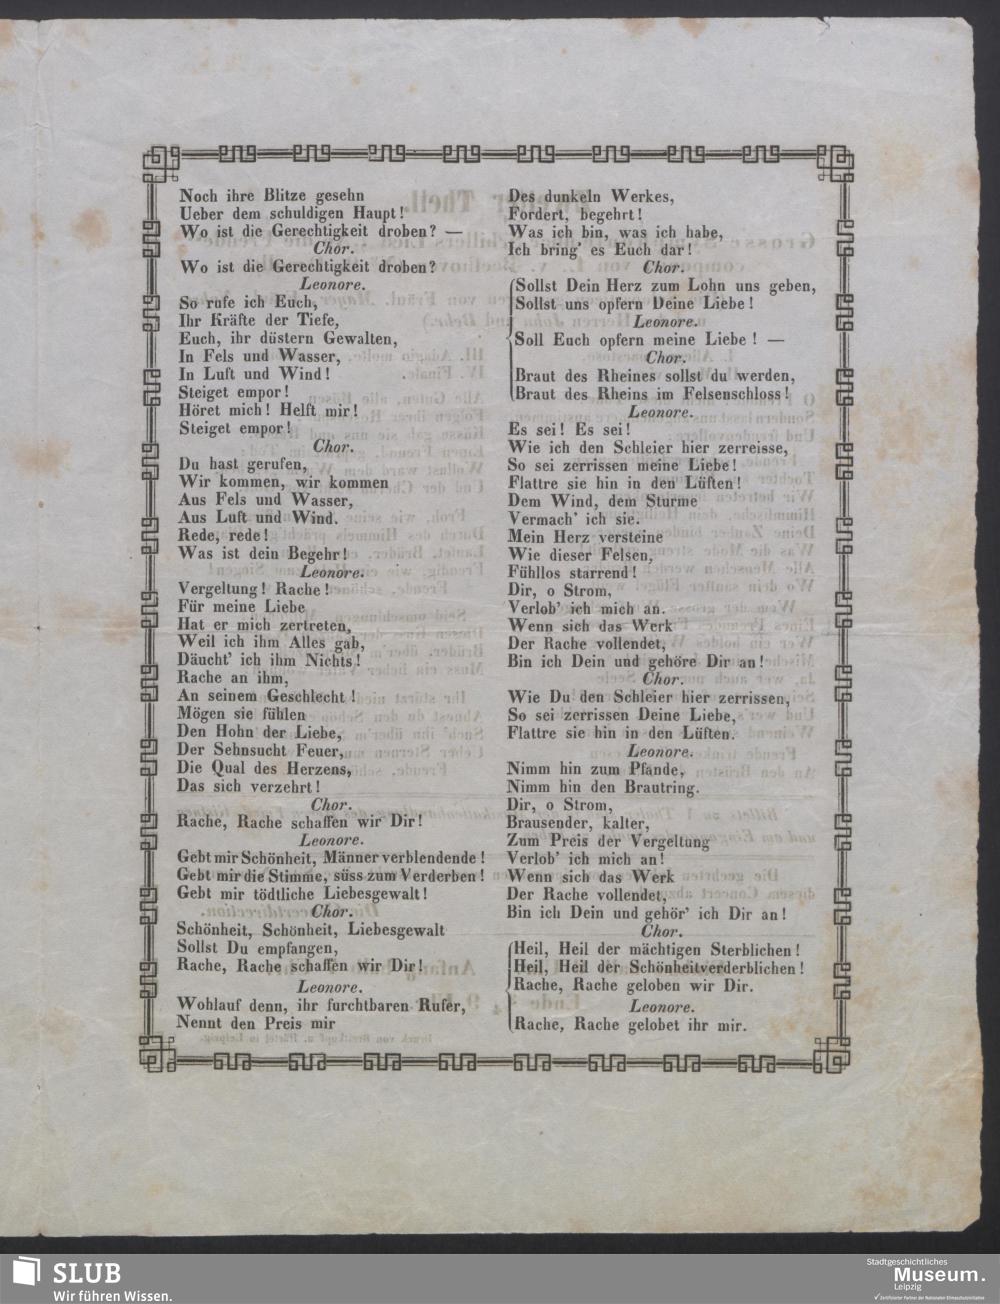 Noch ihre Blitze gesehn
Ueber dem schuldigen Haupt!
Wo ist die Gerechtigkeit droben? —
Chor.
Wo ist die Gerechtigkeit droben?
Leonore.
So rufe ich Euch,
Ihr Kräfte der Tiefe,
Euch, ihr düstern Gewalten,
In Fels und Wasser,
In Luft und Wind!
Steiget empor!
Höret mich! Helft mir!
Steiget empor!
Chor.
Du hast gerufen,
Wir kommen, wir kommen
Aus Fels und Wasser,
Aus Luft und Wind.
Rede, rede!
Was ist dein Begehr!
Leonore.
Vergeltung! Rache!
Für meine Liebe
Hat er mich zertreten,
Weil ich ihm Alles gab,
Däucht' ich ihm Nichts!
Rache an ihm,
An seinem Geschlecht!
Mögen sie fühlen
Den Hohn der Liebe,
Der Sehnsucht Feuer,
Die Qual des Herzens,
Das sich verzehrt!
Chor.
Rache, Rache schaffen wir Dir!
Leonore.
Gebt mir Schönheit, Männer verblendende!
Gebt mir die Stimme, süss zum Verderben!
Gebt mir tödtliche Liebesgewalt!
Chor.
Schönheit, Schönheit, Liebesgewalt
Sollst Du empfangen,
Rache, Rache schaffen wir Dir!
Leonore.
Wohlauf denn, ihr furchtbaren Rufer,
Nennt den Preis mir
Des dunkeln Werkes,
Fordert, begehrt!
Was ich bin, was ich habe,
Ich bring' es Euch dar!
Chor.
Sollst Dein Herz zum Lohn uns geben,
Sollst uns opfern Deine Liebe!
Leonore.
Soll Euch opfern meine Liebe! —
Chor.
Braut des Rheines sollst du werden,
Braut des Rheins im Felsenschloss!
Leonore.
Es sei! Es sei!
Wie ich den Schleier hier zerreisse,
So sei zerrissen meine Liebe!
Flattre sie hin in den Lüften!
Dem Wind, dem Sturme
Vermach' ich sie.
Mein Herz versteine
Wie dieser Felsen,
Fühllos starrend!
Dir, o Strom,
Verlob' ich mich an.
Wenn sich das Werk
Der Rache vollendet,
Bin ich Dein und gehöre Dir an!
Chor.
Wie Du den Schleier hier zerrissen,
So sei zerrissen Deine Liebe,
Flattre sie hin in den Lüften.
Leonore.
Nimm hin zum Pfande,
Nimm hin den Brautring.
Dir, o Strom,
Brausender, kalter,
Zum Preis der Vergeltung
Verlob' ich mich an!
Wenn sich das Werk
Der Rache vollendet,
Bin ich Dein und gehör' ich Dir an!
Chor.
Heil, Heil der mächtigen Sterblichen!
Heil, Heil der Schönheitverderblichen!
Rache, Rache geloben wir Dir.
Leonore.
Rache, Rache gelobet ihr mir.
SLUB
Wir führen Wissen.
Stadtgeschichtliches
Museum.
Leipzig
Zertifizierter Partner der Nationalen Klimaschutzinitiative